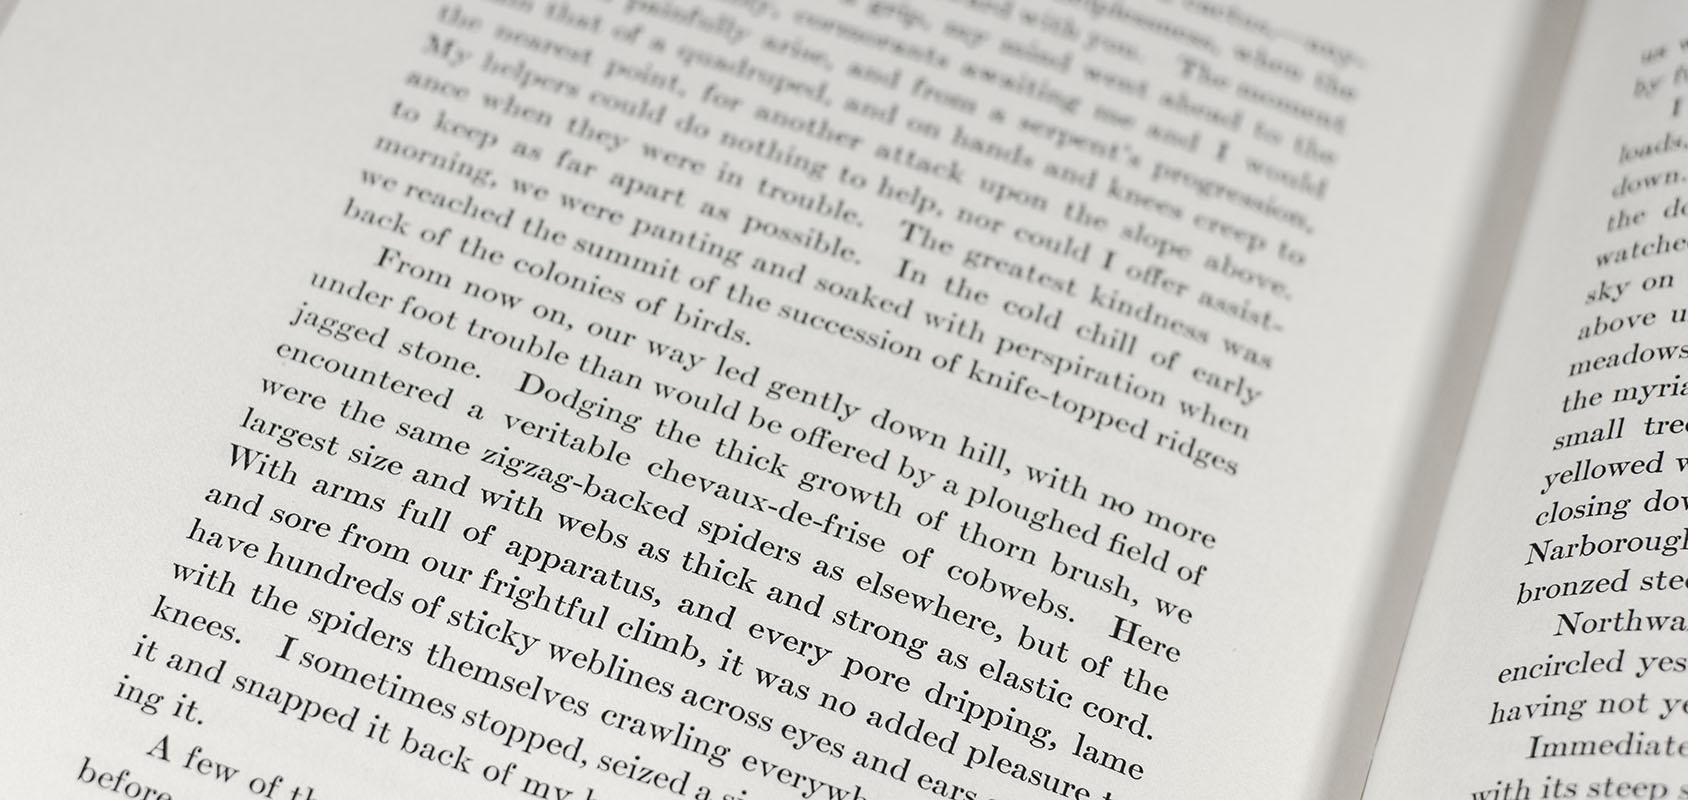 cactus,—any-
helplessness, when the
with you. The moment
a grip, my mind went ahead to the
cormorants awaiting me and I would
painfully arise, and from a serpent's progression,
that of a quadruped, and on hands and knees creep to
the nearest point, for another attack upon the slope above.
My helpers could do nothing to help, nor could I offer assist-
ance when they were in trouble. The greatest kindness was
to keep as far apart as possible. In the cold chill of early
morning, we were panting and soaked with perspiration when
we reached the summit of the succession of knife-topped ridges
back of the colonies of birds.
From now on, our way led gently down hill, with no more
under foot trouble than would be offered by a ploughed field of
jagged stone. Dodging the thick growth of thorn brush, we
encountered a veritable chevaux-de-frise of cobwebs. Here
were the same zigzag-backed spiders as elsewhere, but of the
largest size and with webs as thick and strong as elastic cord.
With arms full of apparatus, and every pore dripping, lame
and sore from our frightful climb, it was no added pleasure
have hundreds of sticky weblines across eyes and ears
with the spiders themselves crawling everywh
knees. I sometimes stopped, seized a
it and snapped it back of my
ing it.
A few of th
before
by
I
loads.
down.
the
watche
sky on
above u
meadows
the myria
small tree
yellowed w
closing dow
Narborough
bronzed stee
Northwa
encircled yes
having not ye
Immediate
with its steep s